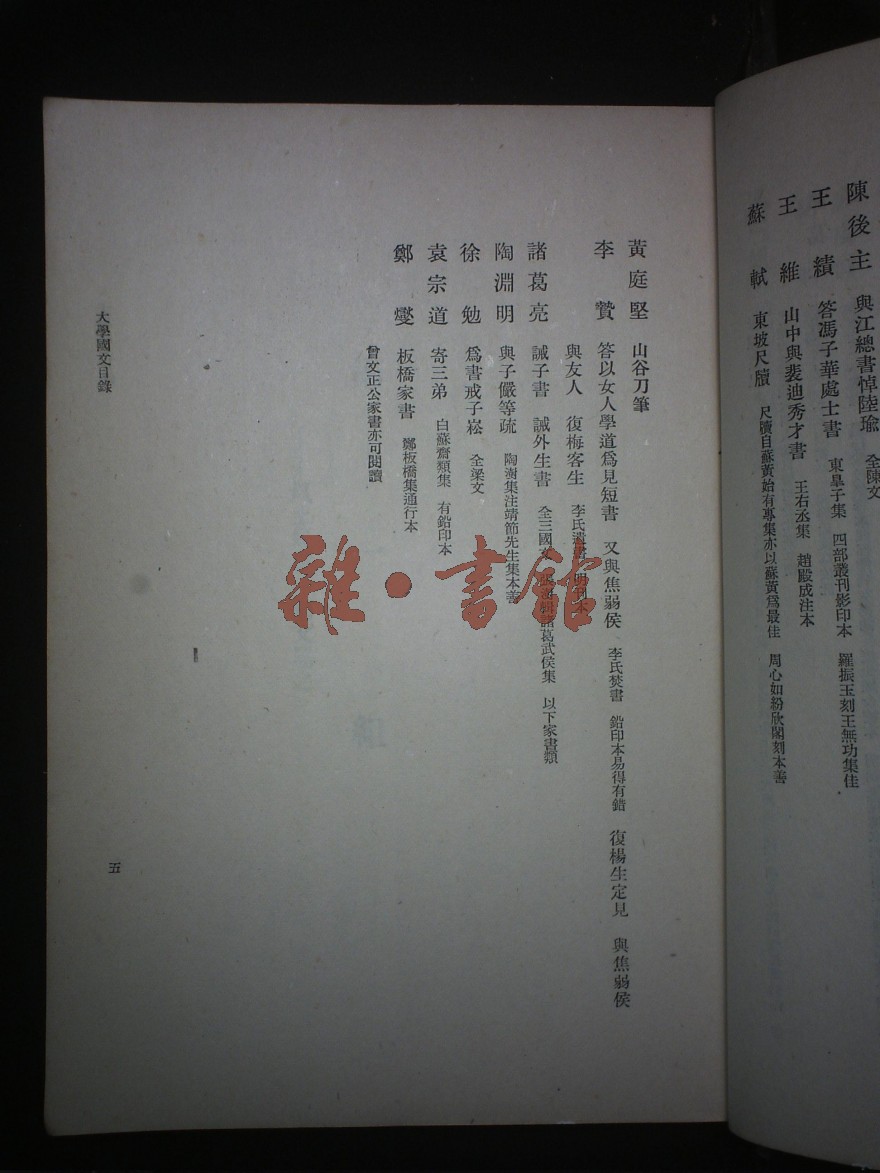 陳後主　與江總書悼陸瑜　全陳文
王績　答馮子華處士書　東臯子集　四部叢刊影印本　羅振玉刻王無功集佳
王維　山中與裴迪秀才書　王右丞集　趙殿成注本
蘇軾　東坡尺牘　尺牘自蘇黃始有專集亦以蘇黃爲最佳　周心如紛欣閣刻本善
黃庭堅　山谷刀筆
李贄　答以女人學道爲見短書　又與焦弱侯　李氏焚書　鉛印本易得有錯　復楊生定見　與焦弱侯
與友人　復梅客生　李氏遺書　明刊本
諸葛亮　誡子書　誡外生書　全三國文　張澍輯諸葛武侯集　以下家書類
陶淵明　與子儼等疏　陶澍集注靖節先生集本善
徐勉　爲書戒子崧　全梁文
袁宗道　寄三弟　白蘇齋類集　有鉛印本
鄭燮　板橋家書　鄭板橋集通行本
曾文正公家書亦可閱讀
大學國文目錄
五
雜·書館